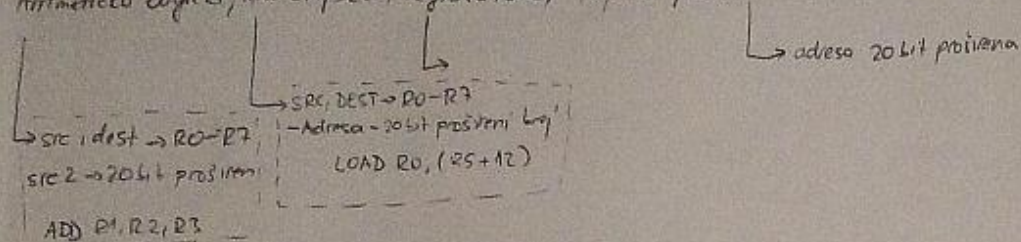 adresa 20 bit proširena
SRC, DEST → R0-R7
- Adresa - 20 bit prošireni broj
LOAD R0, (R5+12)
src i dest → R0-R7
src 2 → 20 bit prošireni
ADD R1, R2, R3